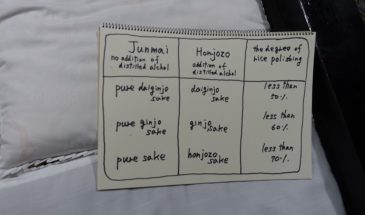 Junmai
no addition of
distilled alchol
Honjozo
addition of
distilled alchol
the degree of
rice polishing
pure daiginjo
sake
daiginjo
sake
less than
50%
pure ginjo
sake
ginjo
sake
less than
60%
pure sake
honjozo
sake
less than
70%